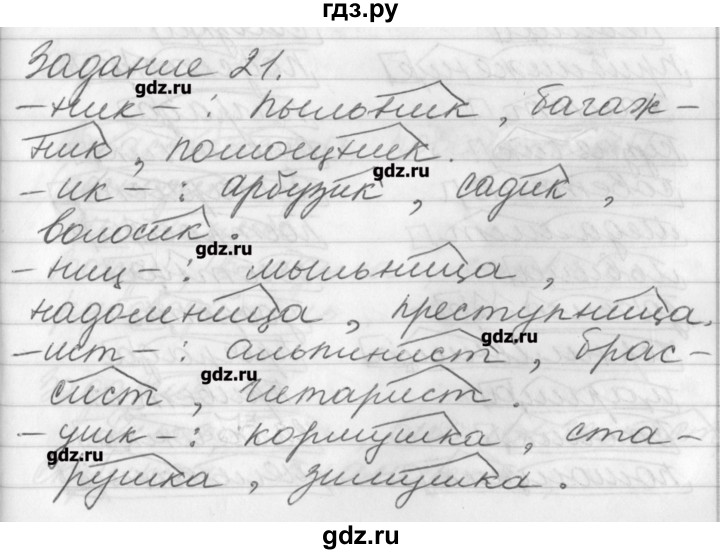 гдз.ру
Задание 21.
gdz.ru
-ник- : пыльник, багаж-
ник, помощник.
gdz.ru
-ик- : арбузик, садик,
волосик.
gdz.ru
-ниц- : мыльница,
надомница, преступница.
gdz.ru
-ист- : альпинист, брас-
gdz.ru
сист, гитарист.
-ушк- : кормушка, ста-
gdz.ru
рушка, зимушка.
gdz.ru